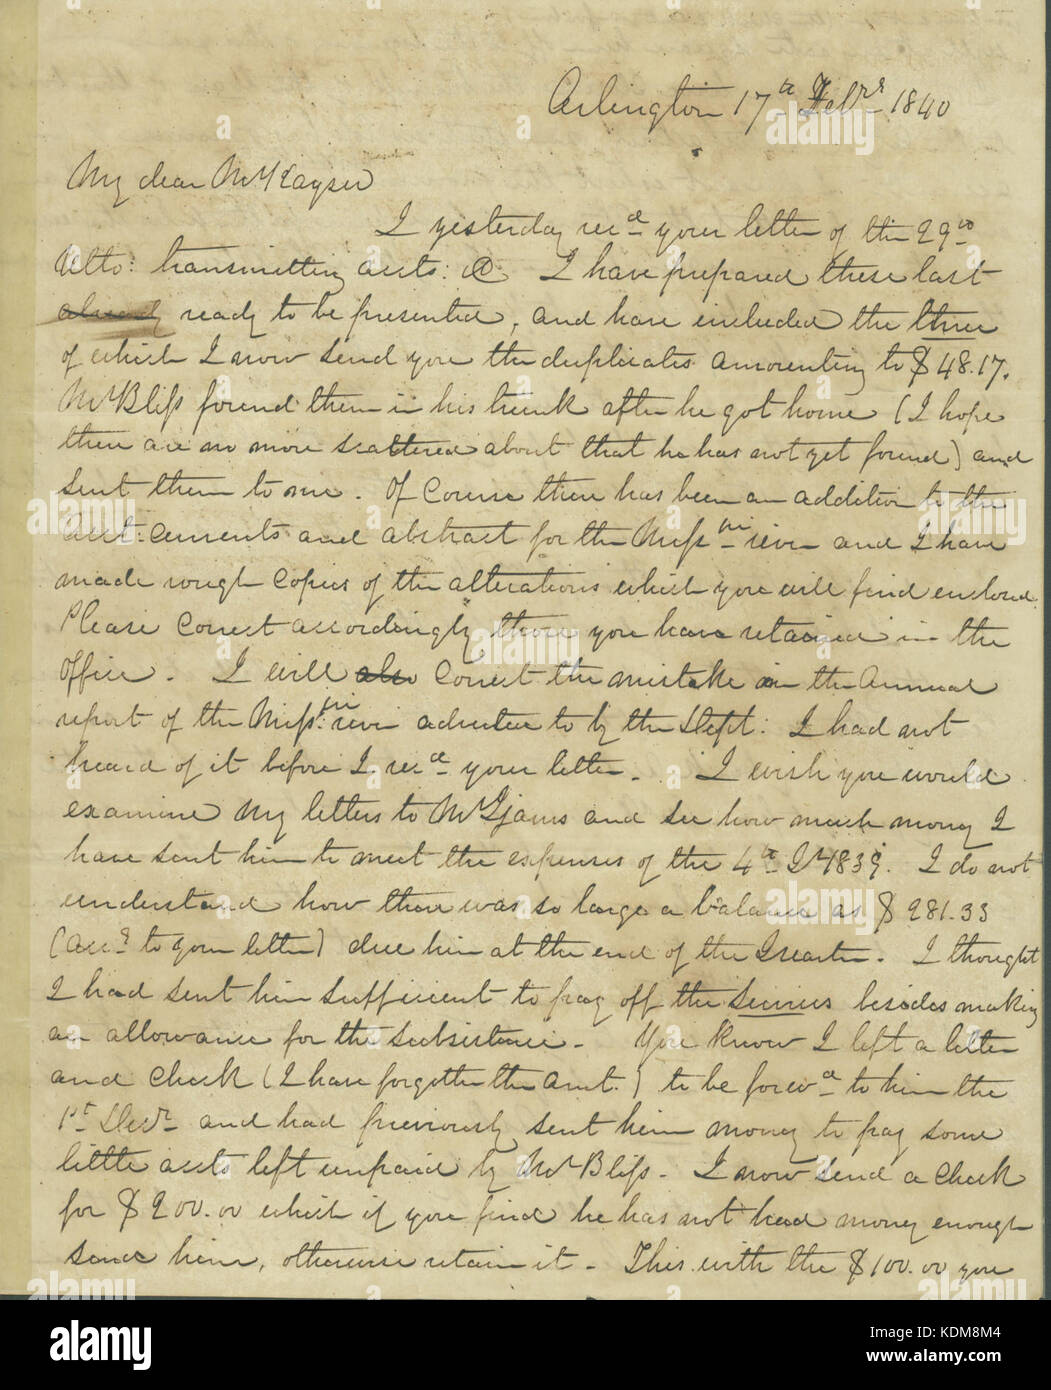 Arlington 17th Febry 1840
My dear Mr Kayser
I yesterday recd your letter of the 29th
Ulto: transmitting accts: &. I have prepared these last
already ready to be presented, and have included the three
of which I now send you the duplicates amounting to $48.17.
Mr Bliss found them in his trunk after he got home (I hope
there are no more scattered about that he has not yet found) and
sent them to me. Of course there has been an addition to the
acct. cements and abstract for the Miss ri river and I have
made rough copies of the alterations which you will find enclosed.
Please correct accordingly those you have retained in the
Office. I will also correct the mistake in the Annual
report of the Miss: ri river adverted to by the Dept: I had not
heard of it before I recd your letter. I wish you would
examine my letters to Mr Ijams and see how much money I
have sent him to meet the expenses of the 4th Qr 1839. I do not
understand how there was so large a balance as $281.33
(accg to your letter) due him at the end of the Quarter. I thought
I had sent him sufficient to pay off the Seniors besides making
an allowance for the subsistence. You know I left a letter
and check (I have forgotten the amt.) to be forwd to him the
1st Decr and had previously sent him money to pay some
little accts left unpaid by Mr Bliss. I now send a check
for $200.00 which if you find he has not had money enough
send him, otherwise retain it. This with the $100.00 you
alamy
KDM8M4
www.alamy.com